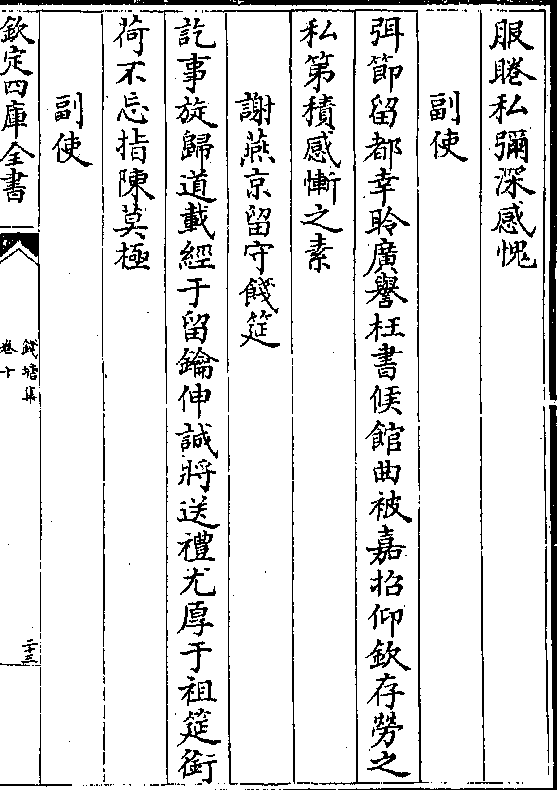 服睠私彌深感愧
副使
弭節留都幸聆廣譽枉書候館曲被嘉招仰欽存勞之
私第積感慚之素
謝燕京留守餞筵
訖事旋歸道載經于留鑰伸誠將送禮尤厚于祖筵銜
荷不忘指陳莫極
副使
欽定四庫全書
錢塘集
卷十
二十三